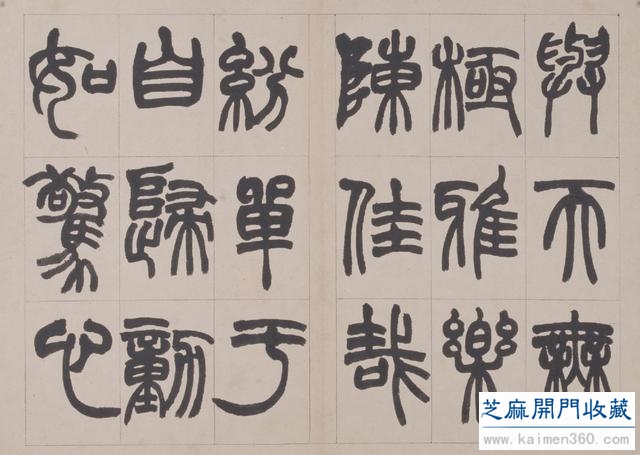 與天無
極雅樂
陳佳哉
紛單于
自歸動
如驚心
芝麻開門收藏
www.kaimen360.com